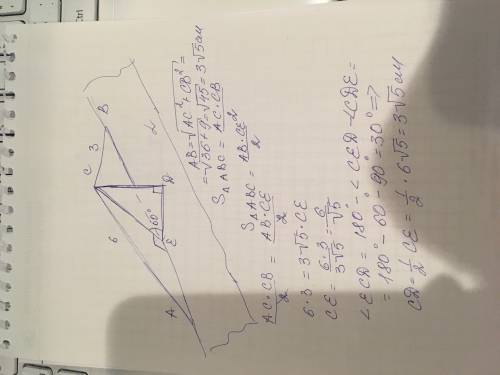 C
B
3
6
60°
D
E
A
α
AB = √AC² + CB² =
= √36+9 = √45 = 3√5 см
S△ABC = AC · CB / 2
S△ABC = AB · CE / 2
AC · CB / 2 = AB · CE / 2
6 · 3 = 3√5 · CE
CE = 6 · 3 / 3√5 = 6 / √5
∠ECD = 180° - ∠CED - ∠CDE =
= 180° - 60 - 90° = 30° =?
CD = 1/2 CE = 1/2 · 6√5 = 3√5 см